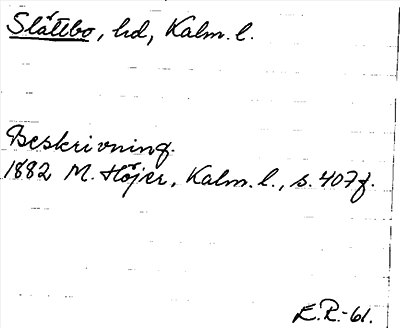 Slättbo, hd, Kalm. l.
Beskrivning.
1882 M. Höjer, Kalm. l., s. 407f.
E.R.-61.